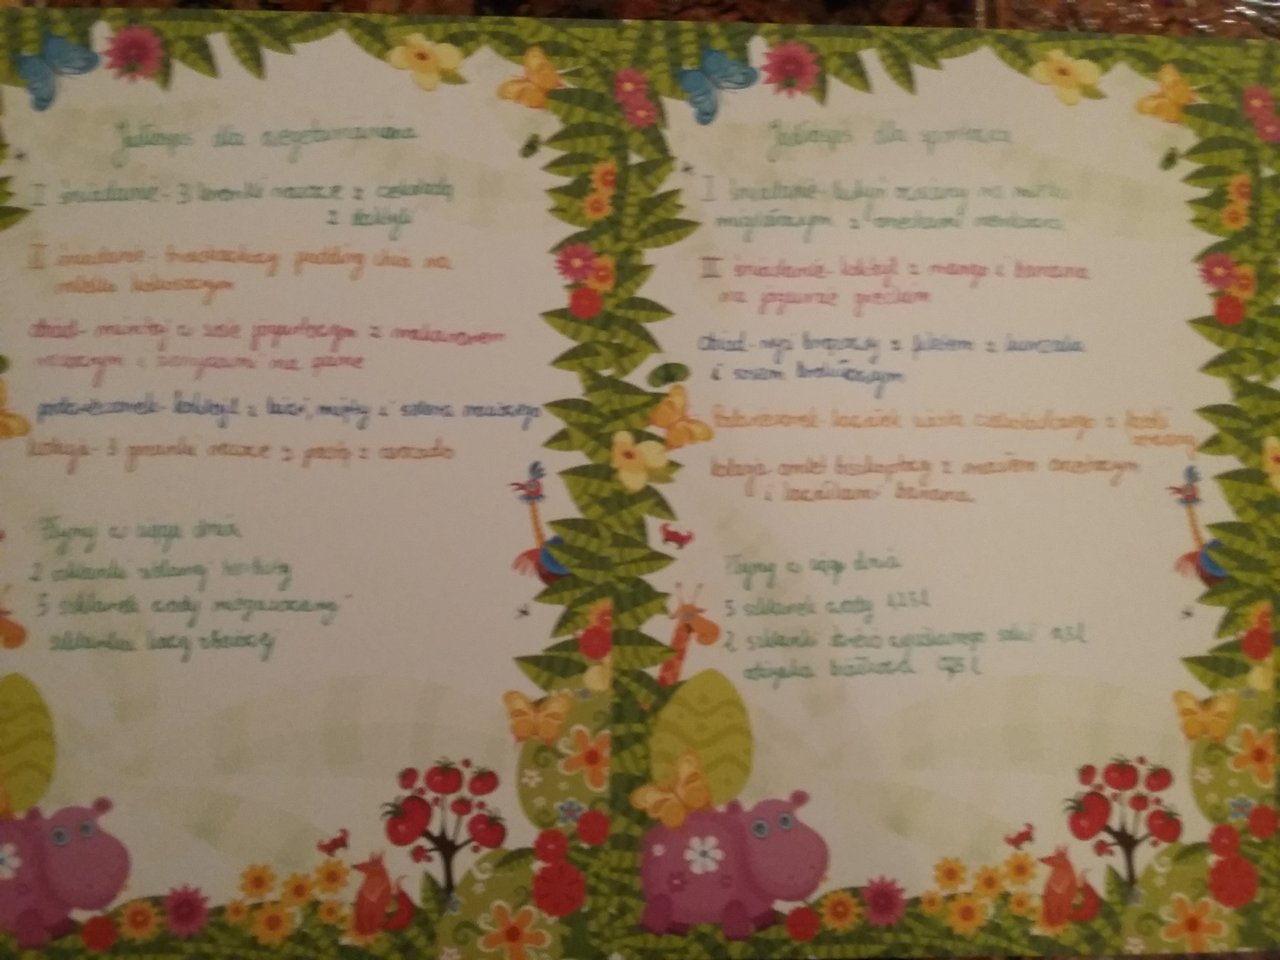 Jadłospis dla wegetarianina
I śniadanie - 3 kromki razowe z czekoladą
z daktyli
II śniadanie - truskawkowy pudding chia na
mleku kokosowym
obiad - w sosie jogurtowym z makaronem
razowym i warzywami na parze
podwieczorek - koktajl z kiwi, mięty i
kolacja - 3 kromki razowe z pastą z avocado
Płyny w ciągu dnia
2 szklanki zielonej herbaty
5 szklanek wody niegazowanej
szklanka kawy zbożowej
Jadłospis dla sportowca
I śniadanie - na mleku
migdałowym z orzechami nerkowca
II śniadanie - koktajl z mango i banana
na jogurcie greckim
obiad - ryż brązowy z filetem z kurczaka
i sosem brokułowym
Podwieczorek - kawałek ciasta czekoladowego z
kolacja omlet biszkoptowy z masłem orzechowym
i kawałkami banana
Płyny w ciągu dnia
5 szklanek wody 1,25 l
2 szklanki świeżo wyciskanego soku 0,5 l
odżywka białkowa